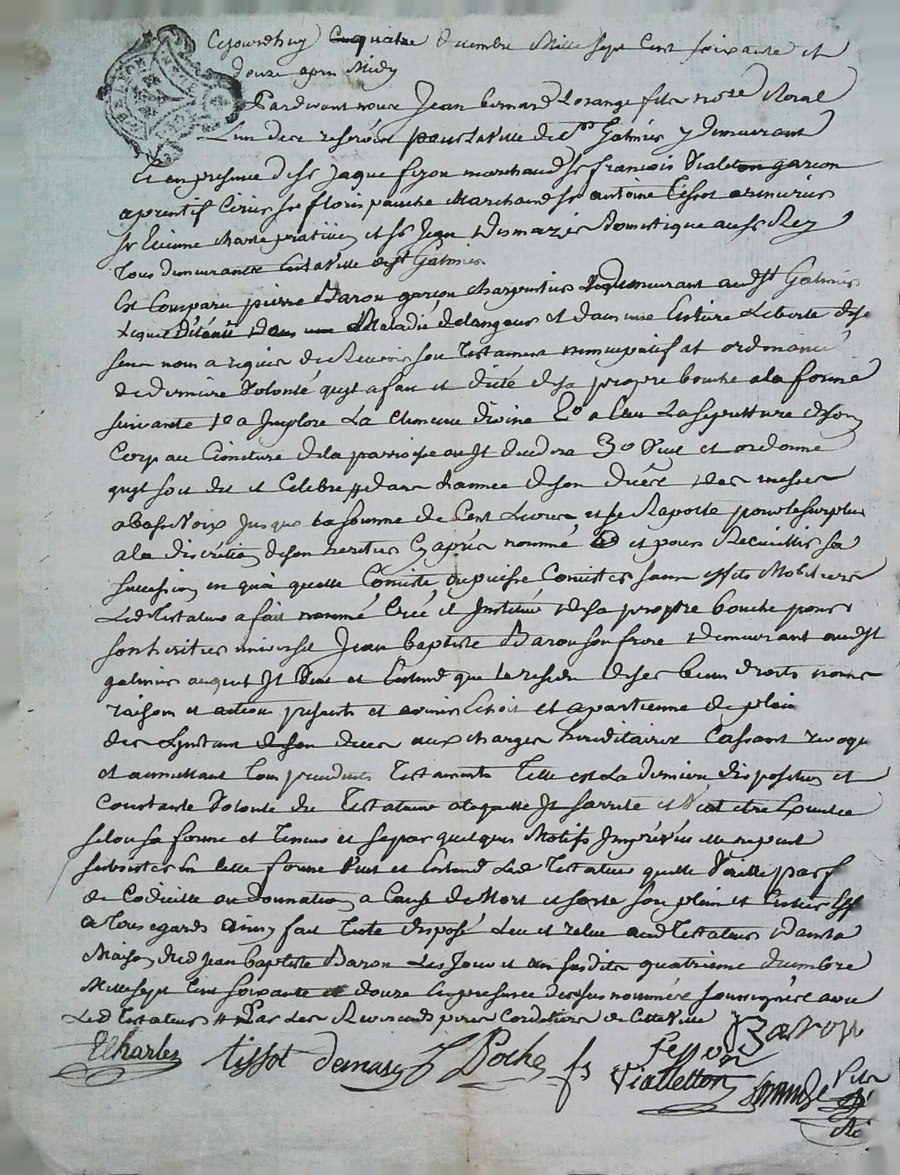 Cejourdhuy quatre decembre Mille sept cent soixante et
douze apres Midy
Pardevant nous Jean bernard Lorange fils no.re Roial
L'un des reservés pour la Ville de St Galmier y demeurant
Et en presence de sr Jaque feyon marchand sr francois Vialeton garçon
aprentif Cirier sr floris pouche Marchand sr antoine tissot armurier
sr Etienne charle praticien et sr Jean Demazie Domestique au sr Rey
tous demeurants en la Ville de st Galmier
Est Comparu pierre Baron garçon charpentier demeurant aud st Galmier
Lequel Détenu Dans une Maladie de langeur et dans une Entiere Liberté de se
sens nous a requis de Recevoir son testament nuncupatif et ordonance
de derniere Volonté qu'il a fait et dicté de sa propre bouche a la forme
suivante 1o a Implore La Clemence divine 2o a Elue La sepulture de son
Corp au Cimetiere de la parroisse aud st 3o Veut et ordonne
qu'il soit dit et Celebré # dans L'année de son décès des messes
a basse Voix jusqua la somme de Cent Livres et se Raporte pour le surplus
a la discretion de son heritier Cy après nommé et pour Recueillir sa
succession en quoi quelle Consiste ou puisse Consister sans effets Mobiliers
Led testateur a fait nommé Créé et Institué de sa propre bouche pour
son heritier universel Jean baptiste Baron son frere demeurant aud st
galmier auquel Il Veut et Entend que le residu de ses biens droits noms
raison et action presents et avenir Echoit et apartienne de plein
des L'instant de son deces aux charges hereditaires Cassant revoqu
et annullant tous precedents testaments telle est La derniere disposition et
Constante Volonté du testateur a laquelle Il s'arrete et Veut etre Executée
selon sa forme et teneur et si par quelques Motifs Imprévus elle ne peut
subsister En cette forme Veut et Entend Led testateur quelle Vaille par f
de Codicille ou donnation a Cause de Mort et sorte son plein et Entier Eff
a tous egards ainsy fait testé disposé Leu et relue aud testateur Dans la
Maison dud Jean baptiste Baron Les Jour et an susdits quatrieme decembre
Mille sept Cent soixante et douze En presence des sus nommés soussignés avec
Led testateur # Par Les Reverends peres Cordeliers de Cette Ville
Baron
ECharles tissot demasy Poche fs feyon
Vialletton